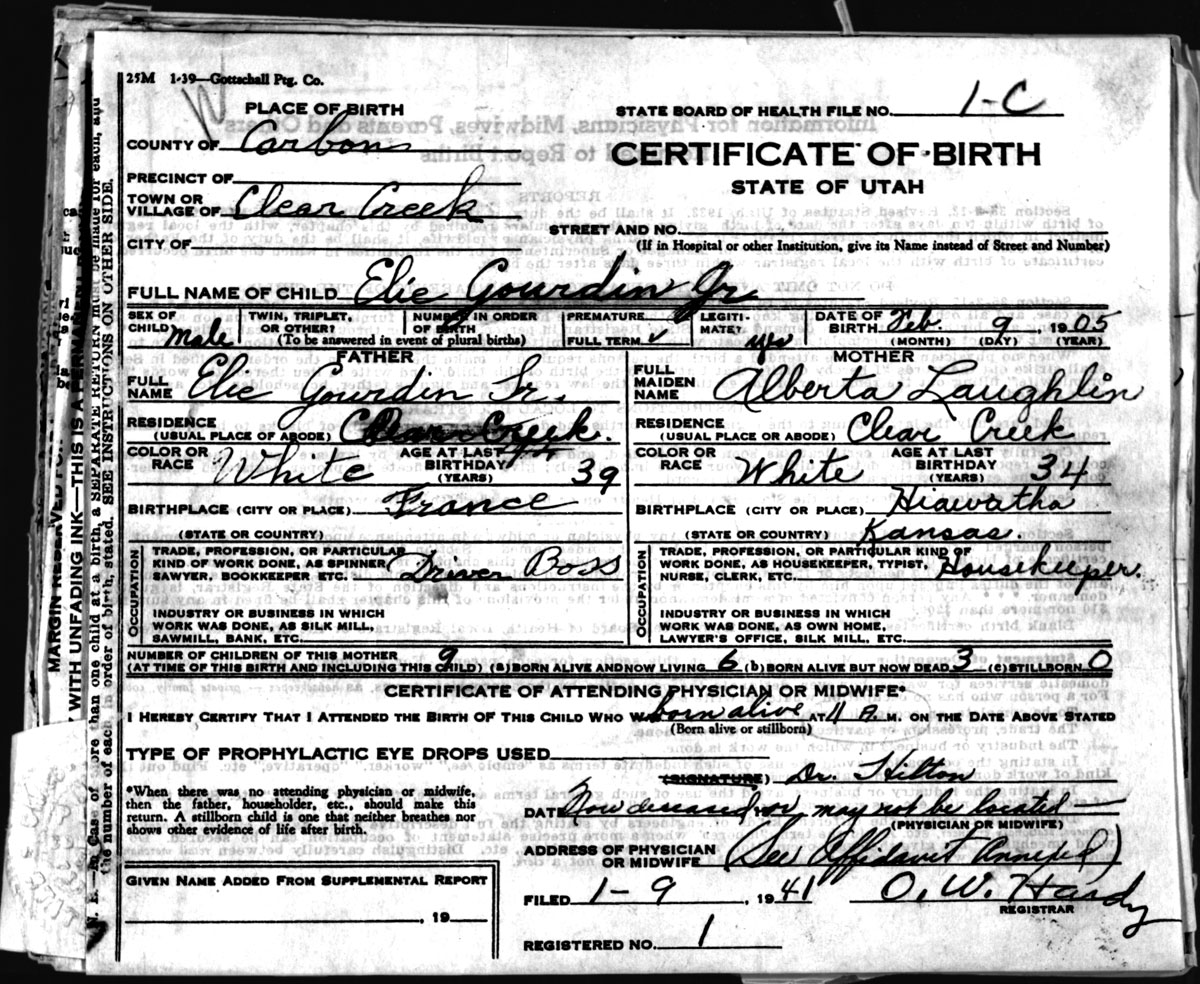 25M 1-39—Gottschall Ptg. Co.
PLACE OF BIRTH
STATE BOARD OF HEALTH FILE NO. 1-C
COUNTY OF Carbon
CERTIFICATE OF BIRTH
PRECINCT OF
STATE OF UTAH
TOWN OR
VILLAGE OF Clear Creek
STREET AND NO.
CITY OF
(If in Hospital or other Institution, give its Name instead of Street and Number)
FULL NAME OF CHILD Elie Gourdin Jr
SEX OF CHILD male
TWIN, TRIPLET, OR OTHER?
NUMBER IN ORDER OF BIRTH
(To be answered in event of plural births)
PREMATURE
FULL TERM ✓
LEGITI-
MATE? yes
DATE OF BIRTH Feb. 9 1905
(MONTH) (DAY) (YEAR)
FATHER
FULL NAME Elie Gourdin Sr.
RESIDENCE
(USUAL PLACE OF ABODE) Clear Creek.
COLOR OR RACE White
AGE AT LAST BIRTHDAY (YEARS) 39
BIRTHPLACE (CITY OR PLACE) France
(STATE OR COUNTRY)
OCCUPATION
TRADE, PROFESSION, OR PARTICULAR
KIND OF WORK DONE, AS SPINNER
SAWYER, BOOKKEEPER ETC. Driver Boss
INDUSTRY OR BUSINESS IN WHICH
WORK WAS DONE, AS SILK MILL,
SAWMILL, BANK, ETC.
MOTHER
FULL MAIDEN NAME Alberta Laughlin
RESIDENCE
(USUAL PLACE OR ABODE) Clear Creek
COLOR OR RACE White
AGE AT LAST BIRTHDAY (YEARS) 34
BIRTHPLACE (CITY OR PLACE) Hiawatha
(STATE OR COUNTRY) Kansas.
OCCUPATION
TRADE, PROFESSION, OR PARTICULAR KIND OF
WORK DONE, AS HOUSEKEEPER, TYPIST,
NURSE, CLERK, ETC. Housekeeper.
INDUSTRY OR BUSINESS IN WHICH
WORK WAS DONE, AS OWN HOME,
LAWYER'S OFFICE, SILK MILL, ETC.
NUMBER OF CHILDREN OF THIS MOTHER 9
(AT TIME OF THIS BIRTH AND INCLUDING THIS CHILD) (a) BORN ALIVE AND NOW LIVING 6 (b) BORN ALIVE BUT NOW DEAD 3 (c) STILLBORN 0
CERTIFICATE OF ATTENDING PHYSICIAN OR MIDWIFE*
I HEREBY CERTIFY THAT I ATTENDED THE BIRTH OF THIS CHILD WHO WAS born alive AT 11 A. M. ON THE DATE ABOVE STATED
(Born alive or stillborn)
TYPE OF PROPHYLACTIC EYE DROPS USED
(SIGNATURE) Dr. Hilton
*When there was no attending physician or midwife,
then the father, householder, etc., should make this
return. A stillborn child is one that neither breathes nor
shows other evidence of life after birth.
DATE Now deceased or may not be located —
(PHYSICIAN OR MIDWIFE)
ADDRESS OF PHYSICIAN
OR MIDWIFE (See Affidavit Annexed)
GIVEN NAME ADDED FROM SUPPLEMENTAL REPORT
, 19
FILED 1-9, 1941 O. W. Hardy
REGISTRAR
REGISTERED NO. 1
MARGIN RESERVED FOR
WITH UNFADING INK—THIS IS A PERMANENT
N. B.—In Case of more than one child at a birth, a SEPARATE RETURN must be made for each, and
the number of each in order of birth, stated. SEE INSTRUCTIONS ON OTHER SIDE.